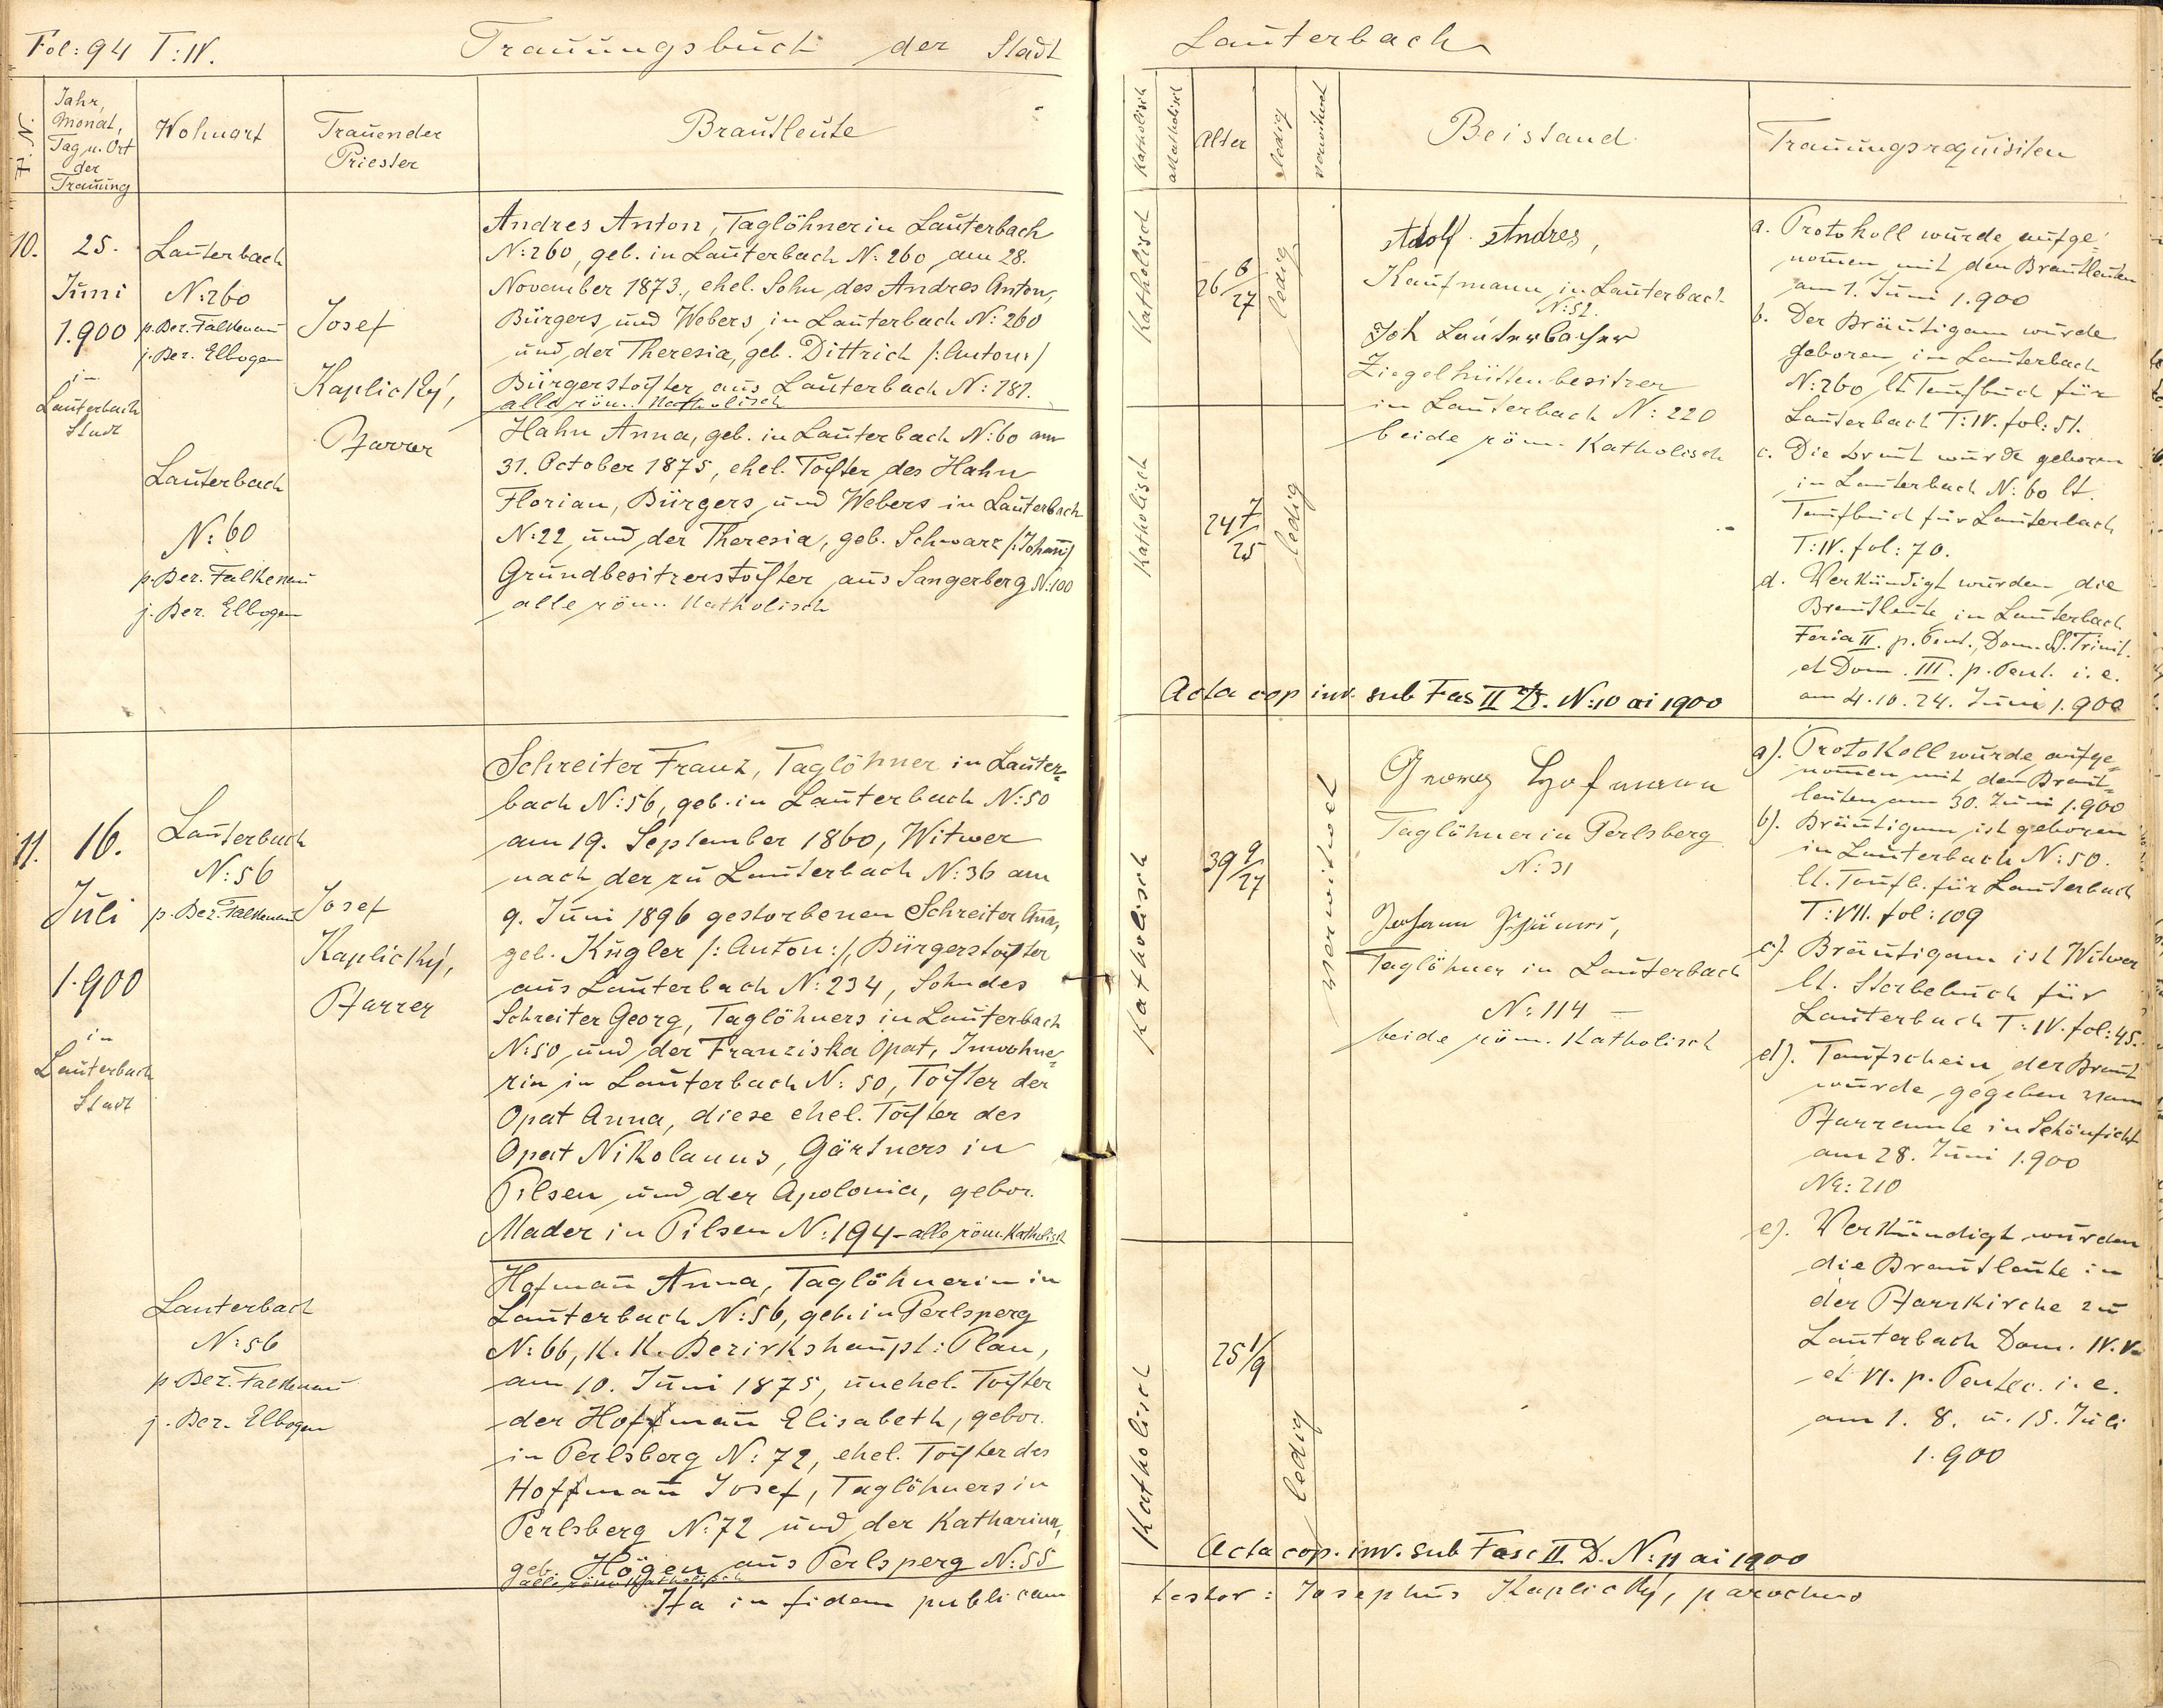 Fol: 94 T: IV. Trauungsbuch der Stadt Lauterbach
F. N.
Jahr,
Monat,
Tag u. Ort
der
Trauung
Wohnort
Trauender
Priester
Brautleute
Katholisch
akatholisch
Alter
ledig
verwitwet
Beistand
Trauungsrequisiten
10.
25.
Juni
1.900
in
Lauterbach
Stadt
Lauterbach
N: 260
p. Bez. Falkenau
j. Bez. Elbogen
Lauterbach
N: 60
p. Bez. Falkenau
j. Bez. Elbogen
Josef
Kaplický,
Pfarrer
Andres Anton, Taglöhner in Lauterbach
N: 260, geb. in Lauterbach N: 260 am 28.
November 1873., ehel. Sohn des Andres Anton,
Bürgers und Webers in Lauterbach N: 260
und der Theresia, geb. Dittrich /: Anton :/
Bürgerstochter aus Lauterbach N: 181.
alle röm. Katholisch
Hahn Anna, geb. in Lauterbach N: 60 am
31. October 1875, ehel. Tochter des Hahn
Florian, Bürgers und Webers in Lauterbach
N: 22 und der Theresia, geb. Schwarz /: Johann :/
Grundbesitzerstochter aus Sangerberg N: 100
alle röm. Katholisch
Katholisch
26 6/27
ledig
Katholisch
24 7/25
ledig
Adolf Andres,
Kaufmann in Lauterbach
N: 52.
Joh Lauterbacher
Ziegelhüttenbesitzer
in Lauterbach N: 220
beide röm. Katholisch
a. Protokoll wurde aufge-
nommen mit den Brautleuten
am 1. Juni 1.900
b. Der Bräutigam wurde
geboren in Lauterbach
N: 260 lt. Taufbuch für
Lauterbach T: IV. fol: 51.
c. Die Braut wurde geboren
in Lauterbach N: 60 lt.
Taufbuch für Lauterbach
T: IV. fol: 70.
d. Verkündigt wurden die
Brautleute in Lauterbach
Feria II. p. Pent., Dom. SS. Trinit.
et Dom. III. p. Pent. i. e.
am 4. 10. 24. Juni 1.900
Acta cop inv. sub Fas II D. N: 10 ai 1900
11.
16.
Juli
1.900
in
Lauterbach
Stadt
Lauterbach
N: 56
p. Bez. Falkenau
Lauterbach
N: 56
p. Bez. Falkenau
j. Bez. Elbogen
Josef
Kaplický,
Pfarrer
Schreiter Franz, Taglöhner in Lauter=
bach N: 56, geb. in Lauterbach N: 50
am 19. September 1860, Witwer
nach der zu Lauterbach N: 36 am
9. Juni 1896 gestorbenen Schreiter Anna,
geb. Kugler /: Anton :/, Bürgerstochter
aus Lauterbach N: 234, Sohn des
Schreiter Georg, Taglöhners in Lauterbach
N: 50 und der Franziska Opat, Inwohne=
rin in Lauterbach N: 50, Tochter der
Opat Anna, diese ehel. Tochter des
Opat Nikolaus, Gärtners in
Pilsen und der Apolonia, gebor.
Mader in Pilsen N: 194 - alle röm. Katholisch
Hofmann Anna, Taglöhnerin in
Lauterbach N: 56, geb. in Perlsperg
N: 66, K. K. Bezirkshaupt: Plan,
am 10. Juni 1875, unehel. Tochter
der Hoffmann Elisabeth, gebor.
in Perlsberg N: 72, ehel. Tochter des
Hoffmann Josef, Taglöhners in
Perlsberg N: 72 und der Katharina,
geb. Högen aus Perlsperg N: 55
alle röm. Katholisch
Katholisch
39 9/27
verwitwet
Katholisch
25 1/9
ledig
Georg Hofmann
Taglöhner in Perlsberg
N: 31
Johann
Taglöhner in Lauterbach
N: 114
beide röm. Katholisch
a). Protokoll wurde aufge=
nommen mit den Braut=
leuten am 30. Juni 1.900
b). Bräutigam ist geboren
in Lauterbach N: 50.
lt. Taufb. für Lauterbach
T: VII. fol: 109
c). Bräutigam ist Witwer
lt. Sterbebuch für
Lauterbach T: IV. fol: 45.
d). Taufschein der Braut
wurde gegeben vom
Pfarramte in Schönficht
am 28. Juni 1.900
Nr: 210
e). Verkündigt wurden
die Brautleute in
der Pfarrkirche zu
Lauterbach Dom. IV. V.
et VI. p. Pentec. i. e.
am 1. 8. u. 15. Juli
1.900
Acta cop. inv. sub Fasc II. D. N: 11 ai 1900
Ita in fidem publicam testor: Josephus Kaplický, parochus